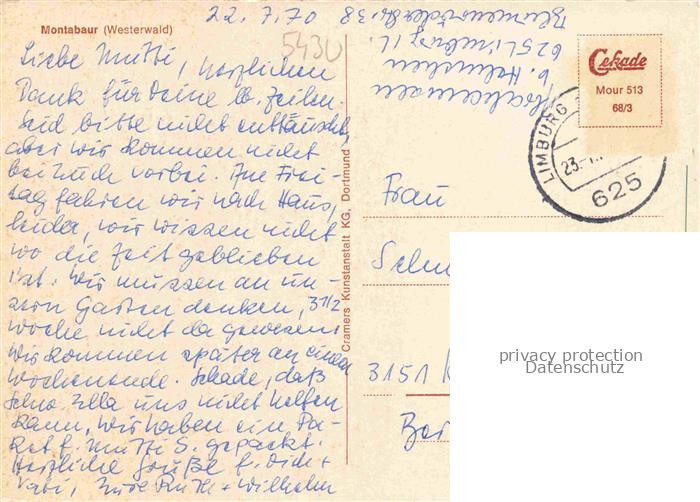 Montabaur (Westerwald)
22.7.70
5430
Liebe Mutti, herzlichen
Dank für Deine lb. Zeilen.
Seid bitte nicht enttäuscht,
aber wir kommen nicht
bei Euch vorbei. Am Frei-
tag fahren wir nach Haus,
leider, wir wissen nicht
wo die Zeit geblieben
ist. Wir müssen an un-
sern Garten denken, 3 1/2
Woche nicht da gewesen.
Wir kommen später an einem
Wochenende. Schade, daß
Ella uns nicht helfen
kann, wir haben ein Pa-
ket f. Mutti S. gepackt.
Herzliche Grüße f. Dich +
Vati, Eure Ruth + Wilhelm
Cramers Kunstanstalt KG, Dortmund
b.
625 Limburg /L.
38
Cekade
Mour 513
68/3
LIMBURG
23.
625
Frau
3151
privacy protection
Datenschutz